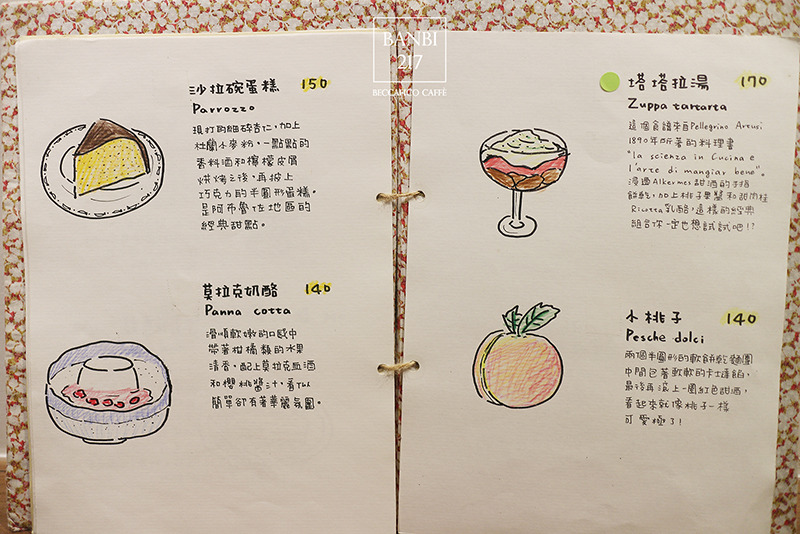 BANBI
217
BECCAFICO CAFFÈ
沙拉碗蛋糕 150
Parrozzo
現打的細碎杏仁，加上
杜蘭小麥粉，一點點的
香料酒和檸檬皮屑
烘烤之後，再披上
巧克力的半圓形蛋糕。
是阿布魯佐地區的
經典甜點。
莫拉克奶酪 140
Panna cotta
滑順軟嫩的口感中
帶著柑橘類的水果
清香，配上莫拉克血酒
和櫻桃醬汁，看似
簡單卻有著華麗氛圍。
塔塔拉湯 170
Zuppa tartarta
這個食譜來自Pellegrino Artusi
1890年所著的料理書
"la scienza in Cucina e
l'arte di mangiar bene"。
浸過Alkermes甜酒的手指
餅乾，加上桃子果醬和甜肉桂
Ricotta乳酪，這樣的經典
組合你一定也想試試吧！？
小桃子 140
Pesche dolci
兩個半圓形的軟餅乾麵團
中間包著軟軟的卡士達餡，
最後再滾上一圈紅色甜酒，
看起來就像桃子一樣
可愛極了！